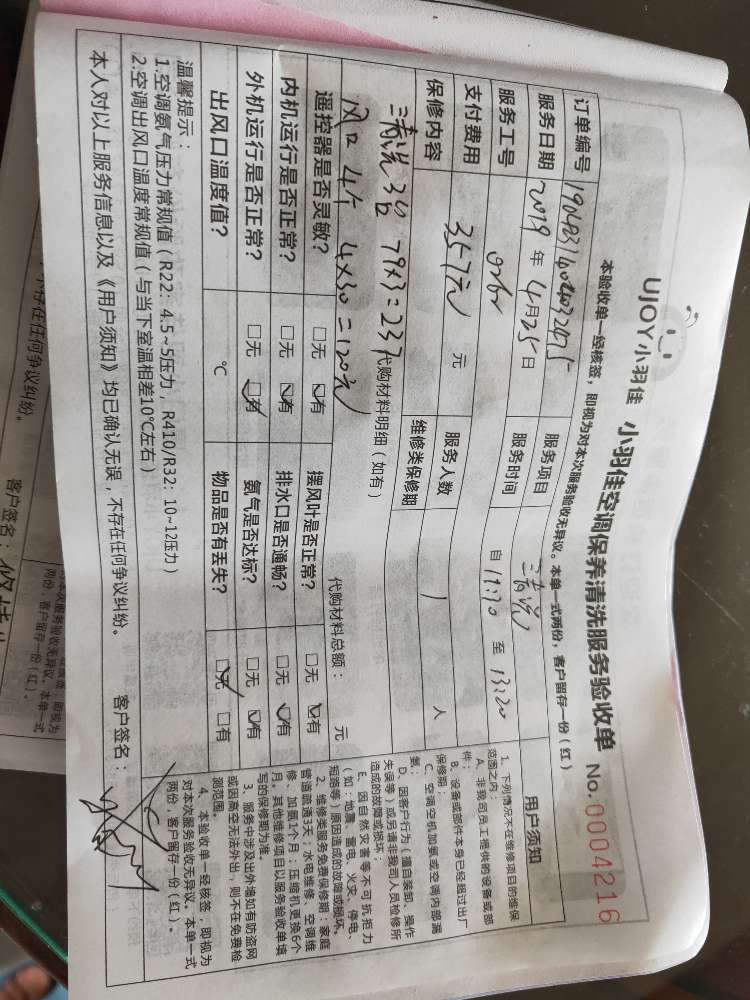 UJOY小羽佳 小羽佳空调保养清洗服务验收单 No.0004216
本验收单一经核签，即视为对本次服务验收无异议。本单一式两份，客户留存一份（红）
订单编号
服务项目 清洗
服务日期 2019 年 4 月 25 日
服务时间 自 11:30 至 13:20
服务工号
支付费用 357元 元
服务人数 1 人
保修内容
维修类保修期
清洗3台 79×3=237
代购材料明细（如有）
风口 4个 4×30=120元
代购材料总额： 元
遥控器是否灵敏？ □无 ☑有 摆风叶是否正常？ □无 ☑有
内机运行是否正常？ □无 ☑有 排水口是否通畅？ □无 ☑有
外机运行是否正常？ □无 ☑有 氨气是否达标？ □无 ☑有
出风口温度值？ ℃ 物品是否有丢失？ ☑无 □有
温馨提示：
1.空调氨气压力常规值（R22：4.5~5压力，R410/R32：10~12压力）
2.空调出风口温度常规值（与当下室温相差10℃左右）
本人对以上服务信息以及《用户须知》均已确认无误，不存在任何争议纠纷。 客户签名：
用户须知
1、下列情况不在维修项目的维保范围之内：
A、非我司员工提供的设备或部件；
B、设备或部件本身已经超过出厂保修期；
C、空调空机加氨或空调内部漏氨；
D、因客户行为（擅自装卸、操作失误等）或另请非我司人员检修所造成的故障或损坏；
E、因自然灾害等不可抗拒力（如：地震、雷电、火灾、停电、短路等）原因造成的故障或损坏。
2、维修类服务免费保修期：家庭管道疏通3天；水电维修、空调维修、加氨1个月；压缩机更换6个月，其他维修项目以服务验收单填写的保修期为准。
3、服务中涉及出外墙如有防盗网或因高空无法外出，则不在免费检测范围。
4、本验收单一经核签，即视为对本次服务验收无异议，本单一式两份，客户留存一份（红）。
不存在任何争议纠纷。
客户签名：